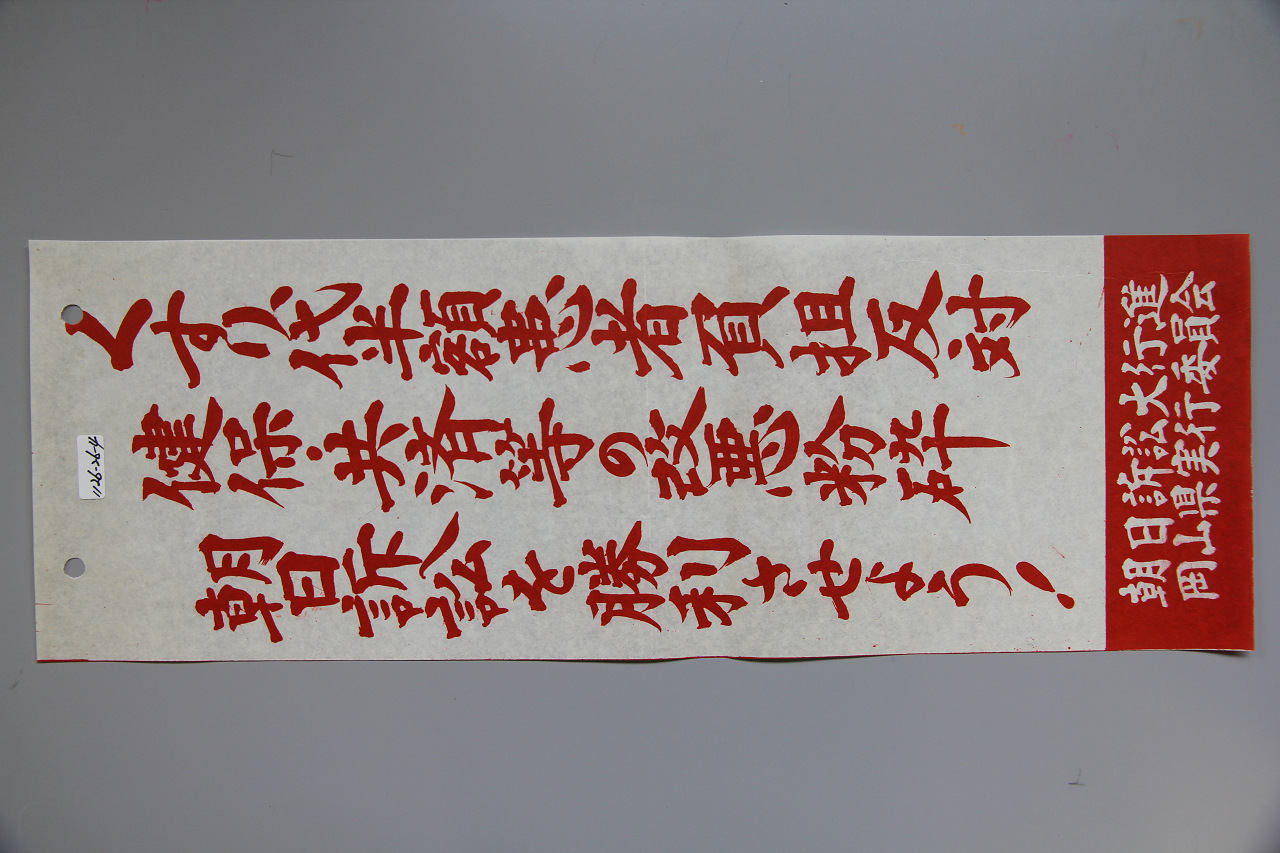 くすり代半額患者負担反対
健保・共済等の改悪粉砕
朝日訴訟を勝利させよう!
朝日訴訟大行進
岡山県実行委員会